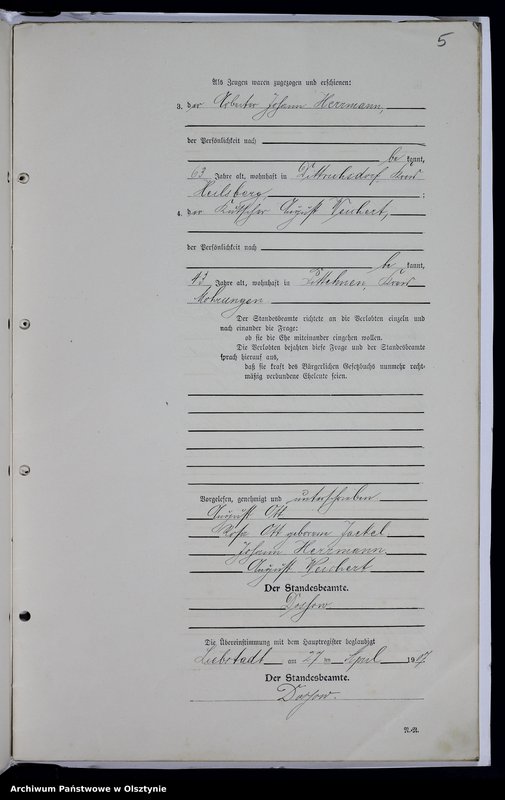 5
Als Zeugen waren zugezogen und erschienen:
3. der Arbeiter Johann Herrmann,
der Persönlichkeit nach
be kannt,
63 Jahre alt, wohnhaft in Dittrichsdorf Kreis
Heilsberg, ;
4. der Kutscher August Neubert,
der Persönlichkeit nach
be kannt,
43 Jahre alt, wohnhaft in Pittehnen, Kreis
Mohrungen
Der Standesbeamte richtete an die Verlobten einzeln und
nach einander die Frage:
ob sie die Ehe miteinander eingehen wollen.
Die Verlobten bejahten diese Frage und der Standesbeamte
sprach hierauf aus,
daß sie kraft des Bürgerlichen Gesetzbuchs nunmehr recht-
mäßig verbundene Eheleute seien.
Vorgelesen, genehmigt und unterschrieben
August Ott
Rosa Ott geborene Jaekel
Johann Herrmann
August Neubert
Der Standesbeamte.
Dossow
Die Übereinstimmung mit dem Hauptregister beglaubigt
Liebstadt am 27 ten April 1917.
Der Standesbeamte.
Dossow.
Archiwum Państwowe w Olsztynie